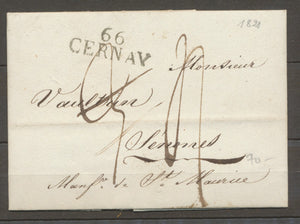 1820
66
CERNAY
Monsieur
Vaulthrin,
Senones
70.-
Manfre. de St. Maurice